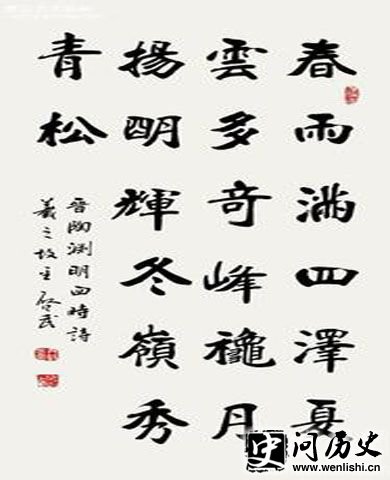 春雨滿四澤夏
雲多奇峰龝月
揚明輝冬嶺秀
青松
晉陶渊明四時詩
羲之故里
问历史
www.wenlishi.cn